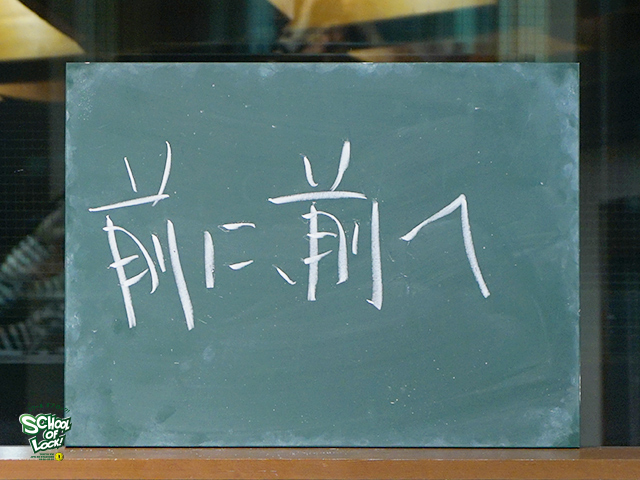 前に、前へ
SCHOOL OF LOCK!